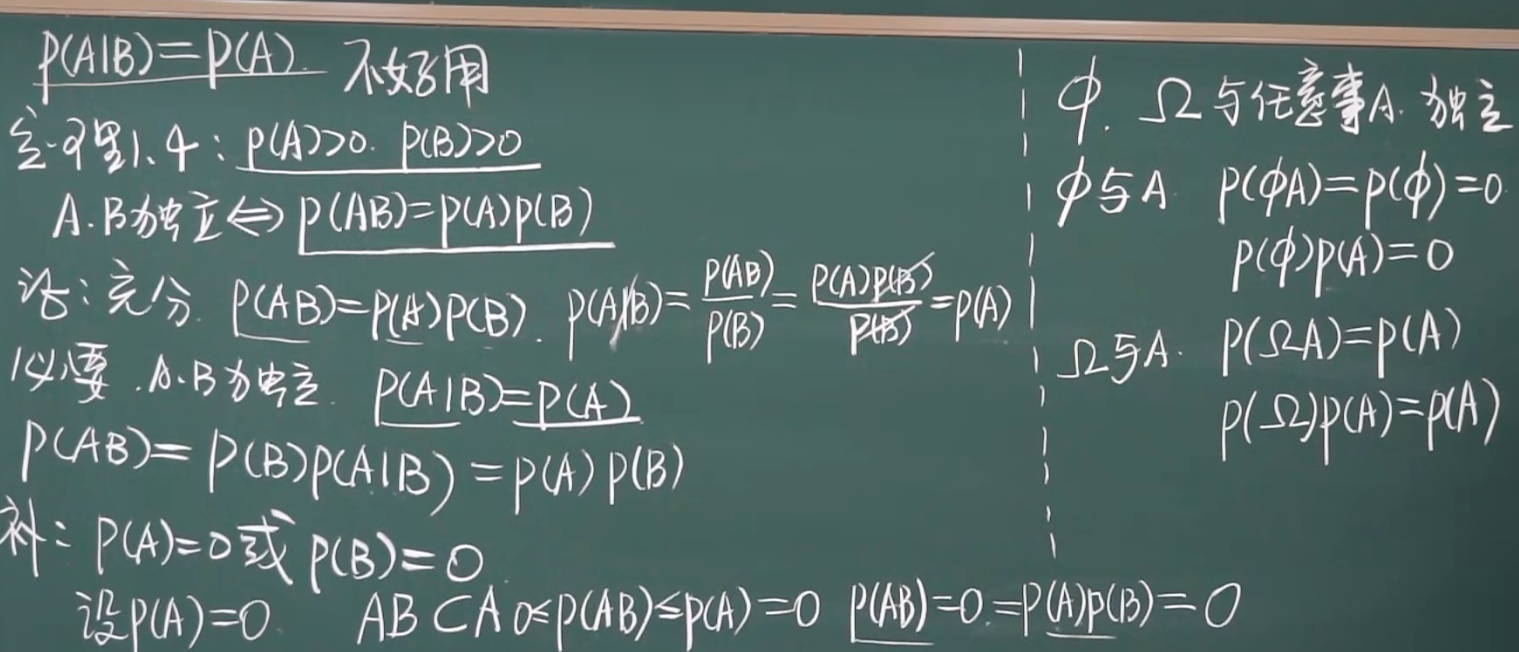 P(A|B)=P(A). 不好用
定理1.4: P(A)>0. P(B)>0
A.B独立⇔P(AB)=P(A)P(B)
证:充分. P(AB)=P(A)P(B). P(A|B)=P(AB)/P(B)=P(A)P(B)/P(B)=P(A)
必要.A.B独立. P(A|B)=P(A)
P(AB)=P(B)P(A|B)=P(A)P(B)
补: P(A)=0或P(B)=0.
设P(A)=0. AB⊂A 0≤P(AB)≤P(A)=0 P(AB)=0.=P(A)P(B)=0
ϕ. Ω与任意事A.独立
ϕ与A. P(ϕA)=P(ϕ)=0.
P(ϕ)P(A)=0
Ω与A. P(ΩA)=P(A)
P(Ω)P(A)=P(A)